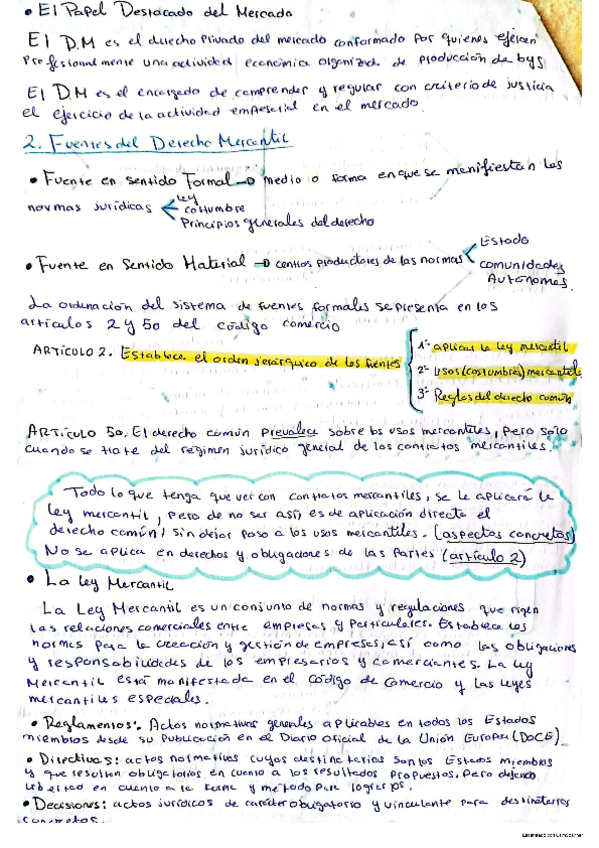 • El Papel Destacado del Mercado
El D.M es el derecho Privado del mercado conformado por quienes ejercen
profesionalmente una actividad económica organizada de producción de bys
El D.M es el encargado de comprender y regular con criterio de justicia
el ejercicio de la actividad empresarial en el mercado.
2. Fuentes del Derecho Mercantil
• Fuente en sentido Formal → medio o forma en que se manifiestan las
normas jurídicas
Ley
costumbre
Principios generales del derecho
• Fuente en Sentido Material → centros productores de las normas
Estado
comunidades
Autónomas.
La ordenación del sistema de fuentes formales se presenta en los
artículos 2 y 50 del código comercio
ARTÍCULO 2. Establece el orden jerárquico de las fuentes
1º- aplicar la ley mercantil
2º- usos (costumbres) mercantiles
3º- Reglas del derecho común
ARTÍCULO 50. El derecho común prevalece sobre los usos mercantiles, pero solo
cuando se trate del régimen jurídico general de los contratos mercantiles.
Todo lo que tenga que ver con contratos mercantiles, se le aplicará la
ley mercantil, pero de no ser así, es de aplicación directa el
derecho común, sin dejar paso a los usos mercantiles. (aspectos concretos)
No se aplica en derechos y obligaciones de las Partes (artículo 2)
• La Ley Mercantil
La Ley Mercantil es un conjunto de normas y regulaciones que rigen
las relaciones comerciales entre empresas y particulares. Establece las
normas para la creación y gestión de empresas, así como las obligaciones
y responsabilidades de los empresarios y comerciantes. La ley
Mercantil está manifestada en el Código de Comercio y las leyes
mercantiles especiales.
• Reglamentos: Actos normativos generales aplicables en todos los Estados
miembros desde su publicación en el Diario oficial de la Unión Europea (DOCE)
• Directivas: actos normativos cuyos destinatarios son los Estados miembros
y que resultan obligatorios en cuanto a los resultados propuestos, pero dejando
libertad en cuanto a la forma y método para lograrlos.
• Decisiones: actos jurídicos de carácter obligatorio y vinculante para destinatarios
concretos.